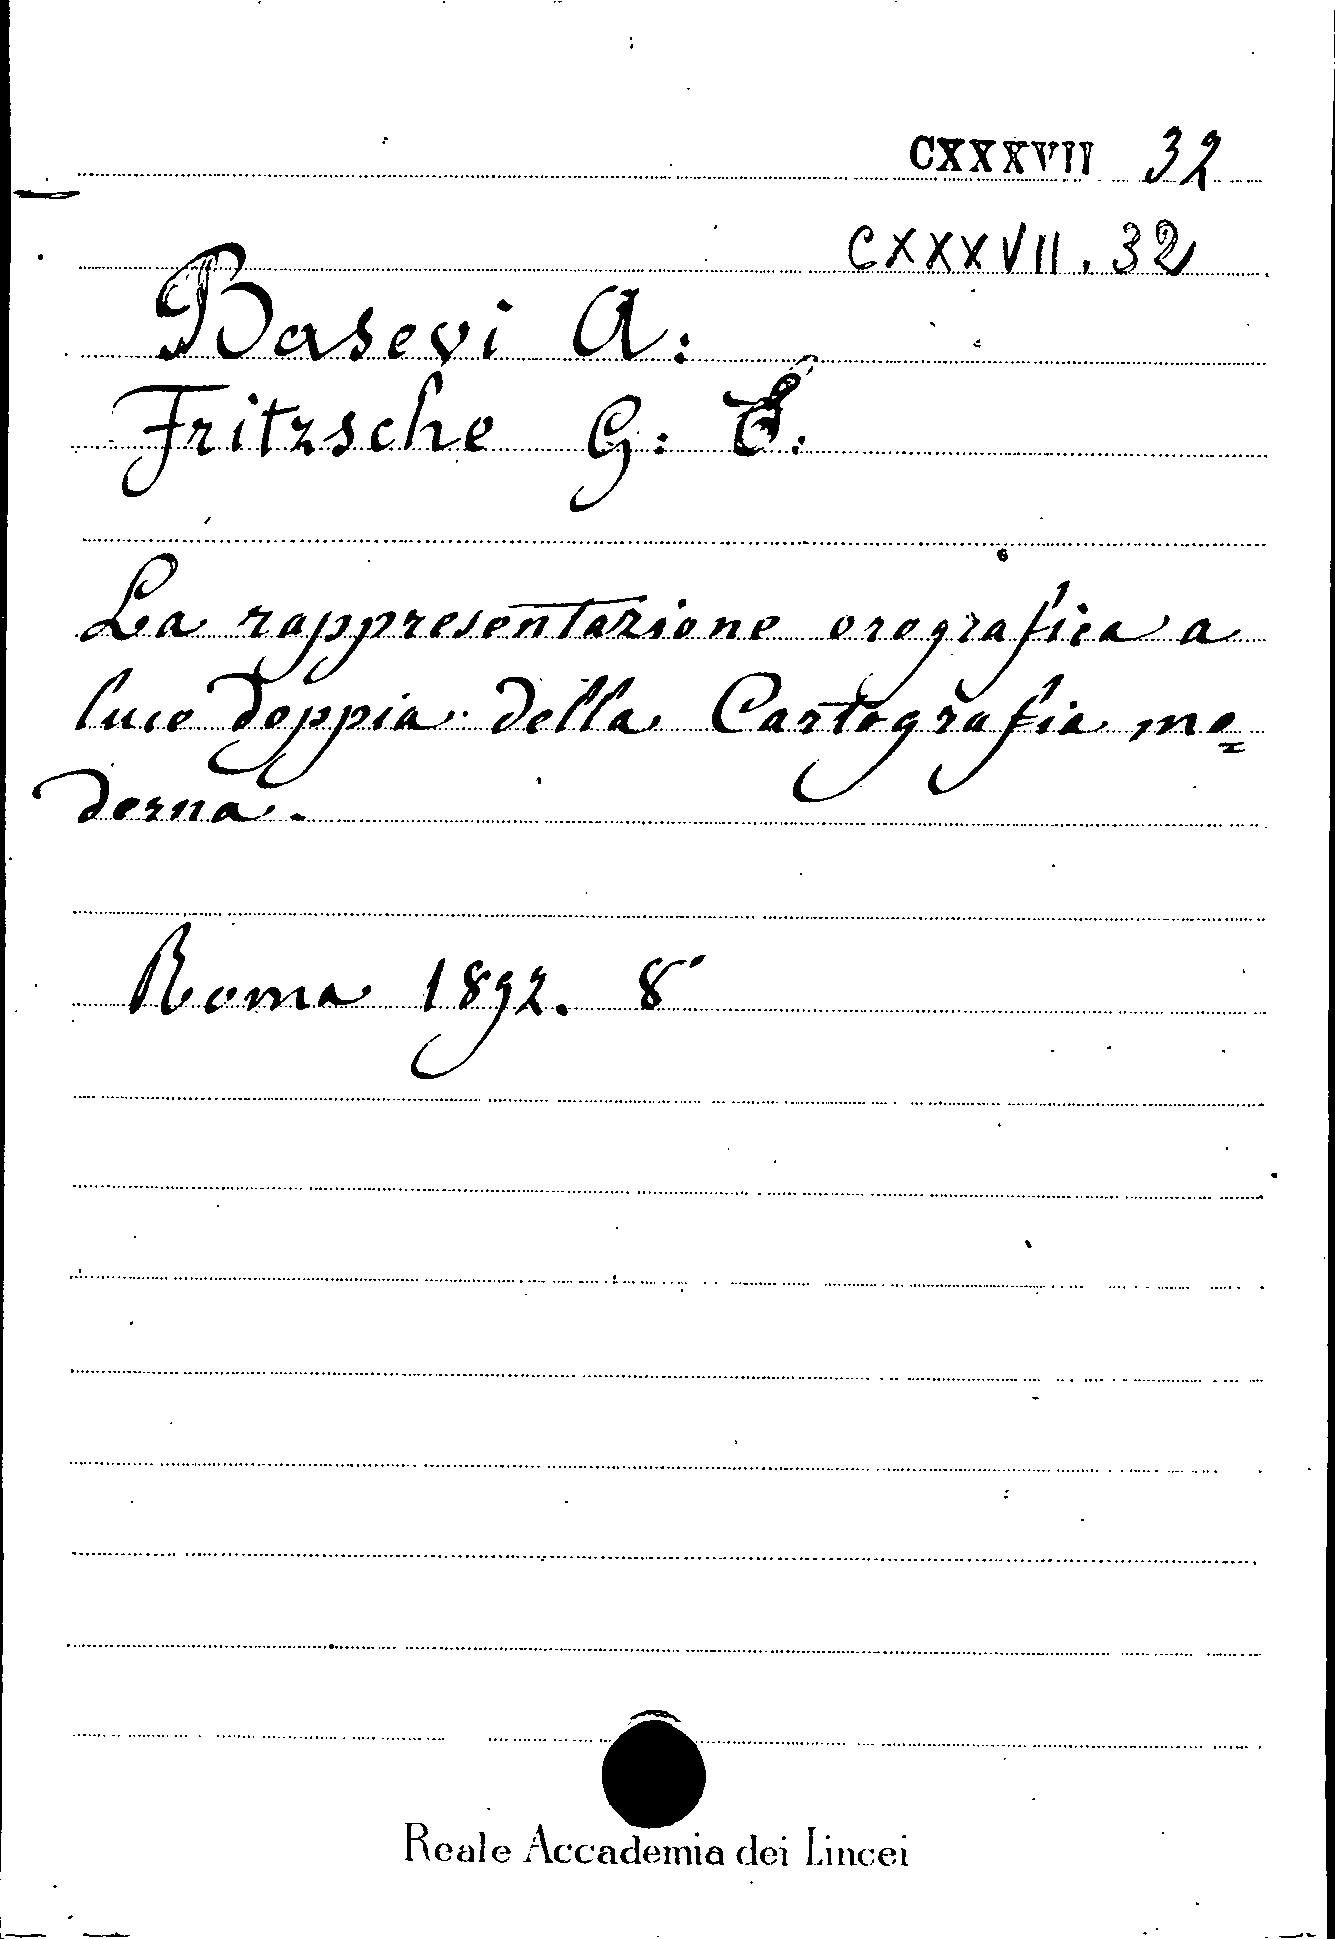 CXXXVII 32
CXXXVII. 32
Basevi A:
Fritzsche G: E.
La rappresentazione orografica a
luce doppia della Cartografia mo=
derna.
Roma 1892. 8°
Reale Accademia dei Lincei